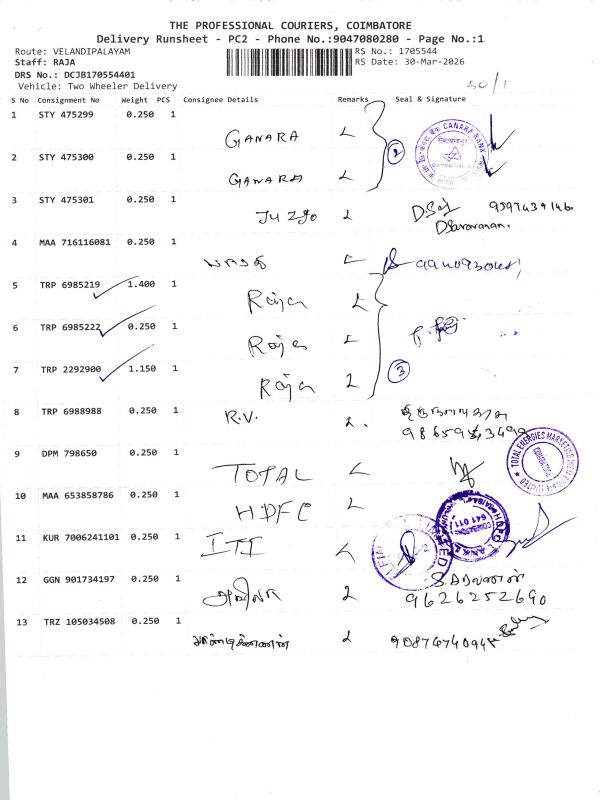 THE PROFESSIONAL COURIERS, COIMBATORE
Delivery Runsheet - PC2 - Phone No.:9047080280 - Page No.:1
Route: VELANDIPALAYAM RS No.: 1705544
Staff: RAJA RS Date: 30-Mar-2026
DRS No.: DCJB170554401
Vehicle: Two Wheeler Delivery 50/1
S No Consignment No Weight PCS Consignee Details Remarks Seal & Signature
1 STY 475299 0.250 1
GANARA L CANARA BANK
2 STY 475300 0.250 1 2
GANARA L
3 STY 475301 0.250 1
L
DSaravanan.
4 MAA 716116081 0.250 1
5 TRP 6985219 1.400 1
Raja L
6 TRP 6985222 0.250 1
Raja L
7 TRP 2292900 1.150 1 3
Raja 2
8 TRP 6988988 0.250 1
R.V. 2.
9 DPM 798650 0.250 1 TOTAL ENERGIES MARKETING
TOTAL L
10 MAA 653858786 0.250 1
HDFC L COIMBATORE 641 011
11 KUR 7006241101 0.250 1
ITI L
12 GGN 901734197 0.250 1
2 9626252690
13 TRZ 105034508 0.250 1
2